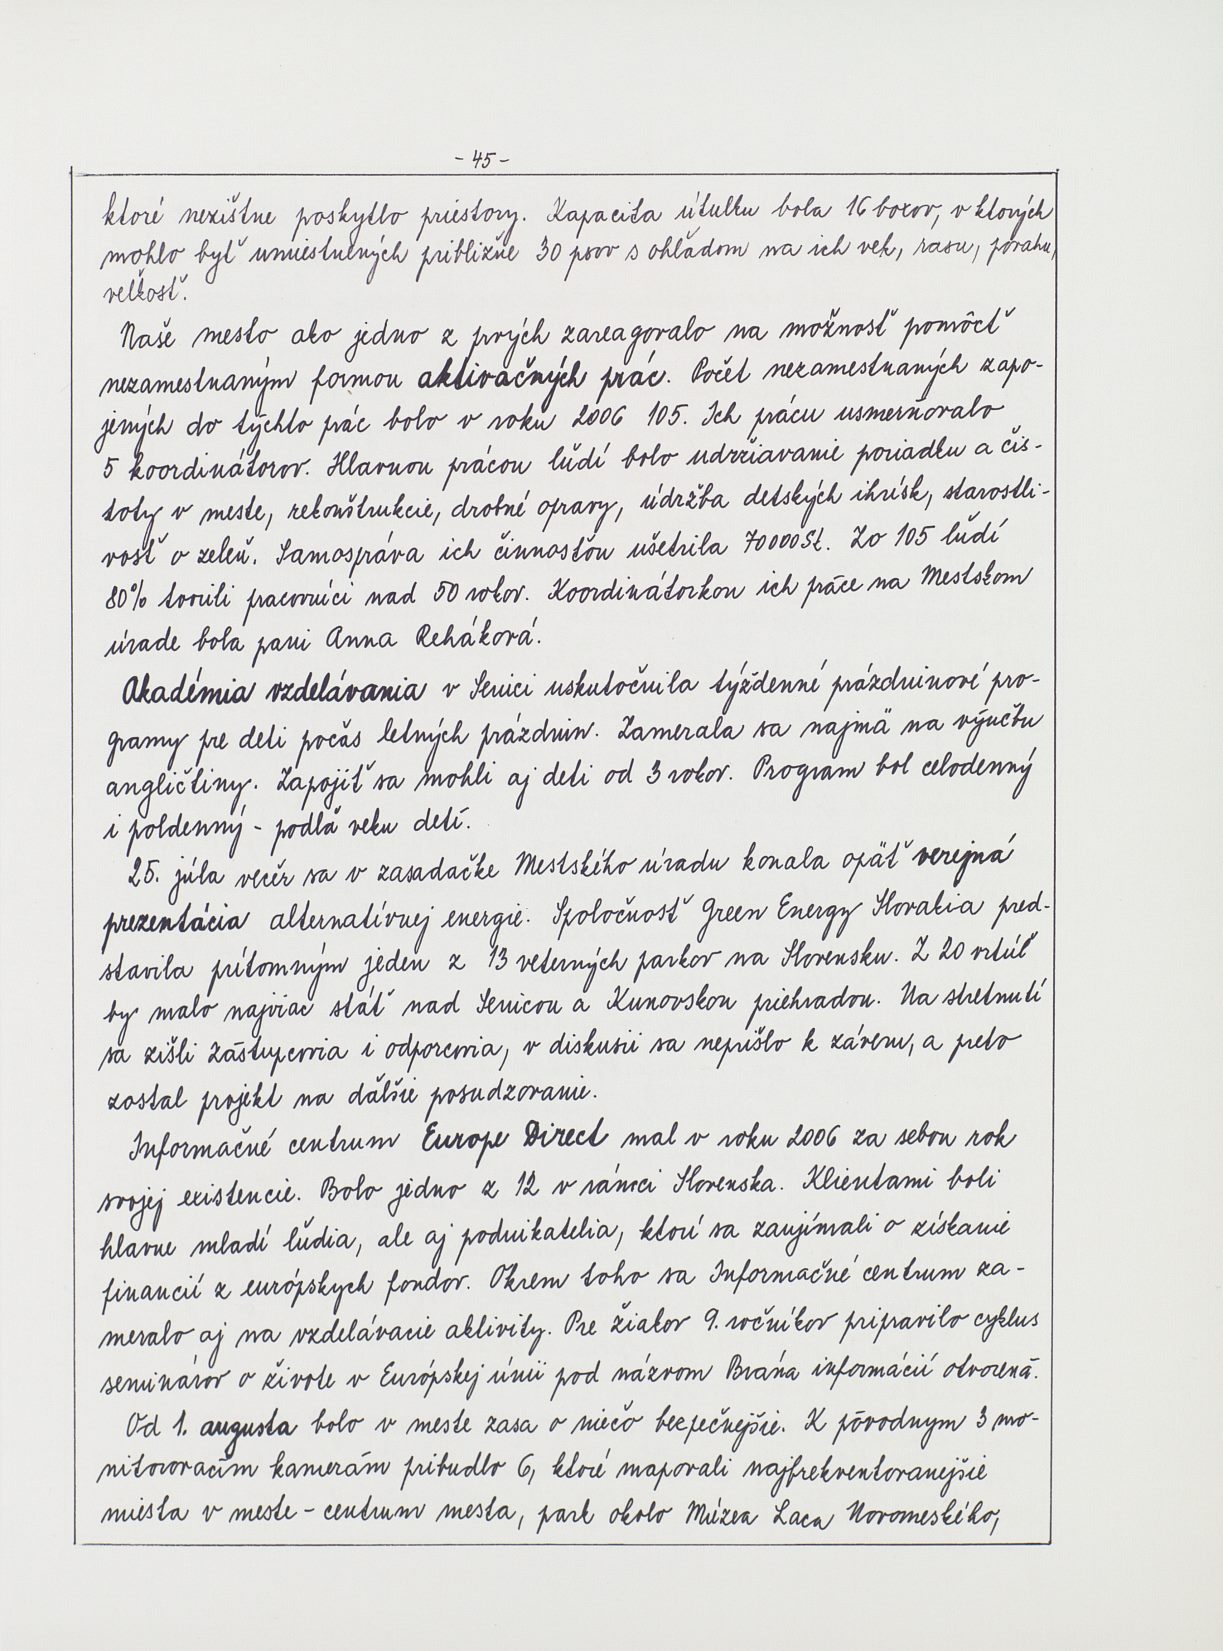 - 45 -
ktoré nezištne poskytlo priestory. Kapacita útulku bola 16 boxov, v ktorých
mohlo byť umiestnených približne 30 psov s ohľadom na ich vek, rasu, povahu,
veľkosť.
Naše mesto ako jedno z prvých zareagovalo na možnosť pomôcť
nezamestnaným formou aktivačných prác. Počet nezamestnaných zapo-
jených do týchto prác bolo v roku 2006 105. Ich prácu usmerňovalo
5 koordinátorov. Hlavnou prácou ľudí bolo udržiavanie poriadku a čis-
toty v meste, rekonštrukcie, drobné opravy, údržba detských ihrísk, starostli-
vosť o zeleň. Samospráva ich činnosťou ušetrila 70000 Sk. Zo 105 ľudí
80% tvorili pracovníci nad 50 rokov. Koordinátorkou ich práce na Mestskom
úrade bola pani Anna Reháková.
Akadémia vzdelávania v Senici uskutočnila týždenné prázdninové pro-
gramy pre deti počas letných prázdnin. Zamerala sa najmä na výučbu
angličtiny. Zapojiť sa mohli aj deti od 3 rokov. Program bol celodenný
i poldenný - podľa veku detí.
25. júla večer sa v zasadačke Mestského úradu konala opäť verejná
prezentácia alternatívnej energie. Spoločnosť Green Energy Slovakia pred-
stavila prítomným jeden z 13 veterných parkov na Slovensku. Z 20 vrtúľ
by malo najviac stáť nad Senicou a Kunovskou priehradou. Na stretnutí
sa zišli zástupcovia i odporcovia, v diskusii sa neprišlo k záveru, a preto
zostal projekt na ďalšie posudzovanie.
Informačné centrum Europe Direct mal v roku 2006 za sebou rok
svojej existencie. Bolo jedno z 12 v rámci Slovenska. Klientami boli
hlavne mladí ľudia, ale aj podnikatelia, ktorí sa zaujímali o získanie
financií z európskych fondov. Okrem toho sa Informačné centrum za-
meralo aj na vzdelávacie aktivity. Pre žiakov 9. ročníkov pripravilo cyklus
seminárov o živote v Európskej únii pod názvom Brána informácií otvorená.
Od 1. augusta bolo v meste zasa o niečo bezpečnejšie. K pôvodnym 3 mo-
nitorovacím kamerám pribudlo 6, ktoré mapovali najfrekventovanejšie
miesta v meste - centrum mesta, park okolo Múzea Laca Novomeského,